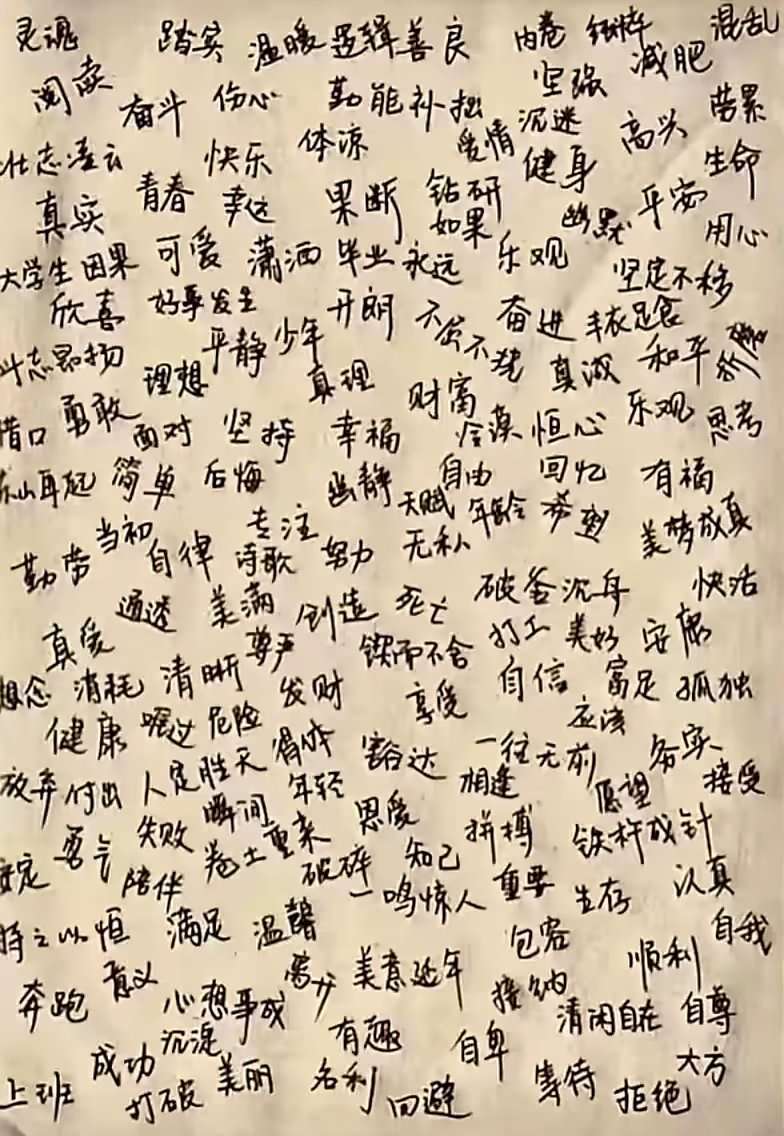 灵魂 踏实 温暖 逻辑 善良 内卷 纯粹 混乱
阅读 奋斗 伤心 勤能补拙 坚强 减肥
壮志凌云 快乐 体凉 爱情 沉迷 健身 高兴 劳累
真实 青春 幸运 果断 钻研 如果 幽默 平安 生命
大学生 因果 可爱 潇洒 毕业 永远 乐观 坚定不移 用心
欣喜 好事发生 开朗 不屈不挠 奋进 丰衣足食
斗志昂扬 理想 平静 少年 真理 财富 真诚 和平
借口 勇敢 面对 坚持 幸福 冷漠 恒心 乐观 思考
东山再起 简单 后悔 幽静 自由 回忆 有福
勤劳 当初 自律 专注 诗歌 努力 天赋 无私 年龄 美梦成真
真爱 通透 美满 创造 死亡 破釜沉舟 快活
想念 消耗 清晰 尊严 锲而不舍 打工 美好 安康
健康 嘱过 危险 发财 享受 自信 富足 孤独
放弃 付出 人定胜天 得体 豁达 一往无前 应该 务实
安定 勇气 失败 瞬间 年轻 恩爱 相逢 愿望 接受
陪伴 卷土重来 破碎 知己 拼搏 铁杵成针
持之以恒 满足 温馨 一鸣惊人 重要 生存 认真
奔跑 意义 心想事成 美意延年 包容 接纳 顺利 自我
上班 成功 沉淀 有趣 自卑 清闲自在 自尊
打破 美丽 名利 回避 等待 拒绝 大方